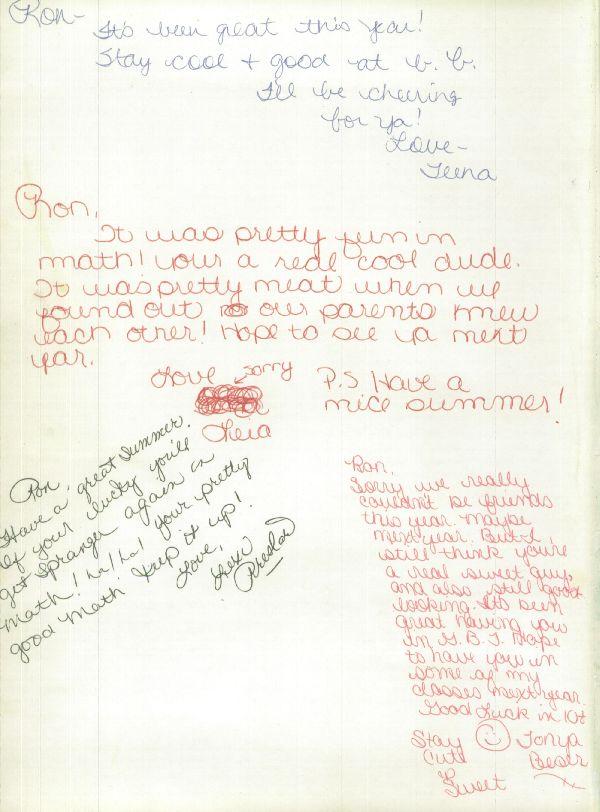 Ron-
It's been great this year!
Stay cool + good at b. b.
I'll be cheering
for ya!
Love-
Teena
Ron,
It was pretty fun in
math! your a real cool dude.
It was pretty neat when we
found out our parents knew
each other! Hope to see ya next
year.
Love sorry
Leia
P.S Have a
nice summer!
Ron,
Have a great summer.
If your lucky you'll
get Spranger again in
math! ha/ha! your pretty
good math keep it up!
Love,
Ron,
Sorry we really
couldn't be friends
this year. Maybe
next year. But I
still think you're
a real sweet guy,
and also still good
looking. It's been
great having you
in G.B.T. Hope
to have you in
some of my
classes next year.
Good Luck in 10th
Stay Tonya
Cute
Sweet